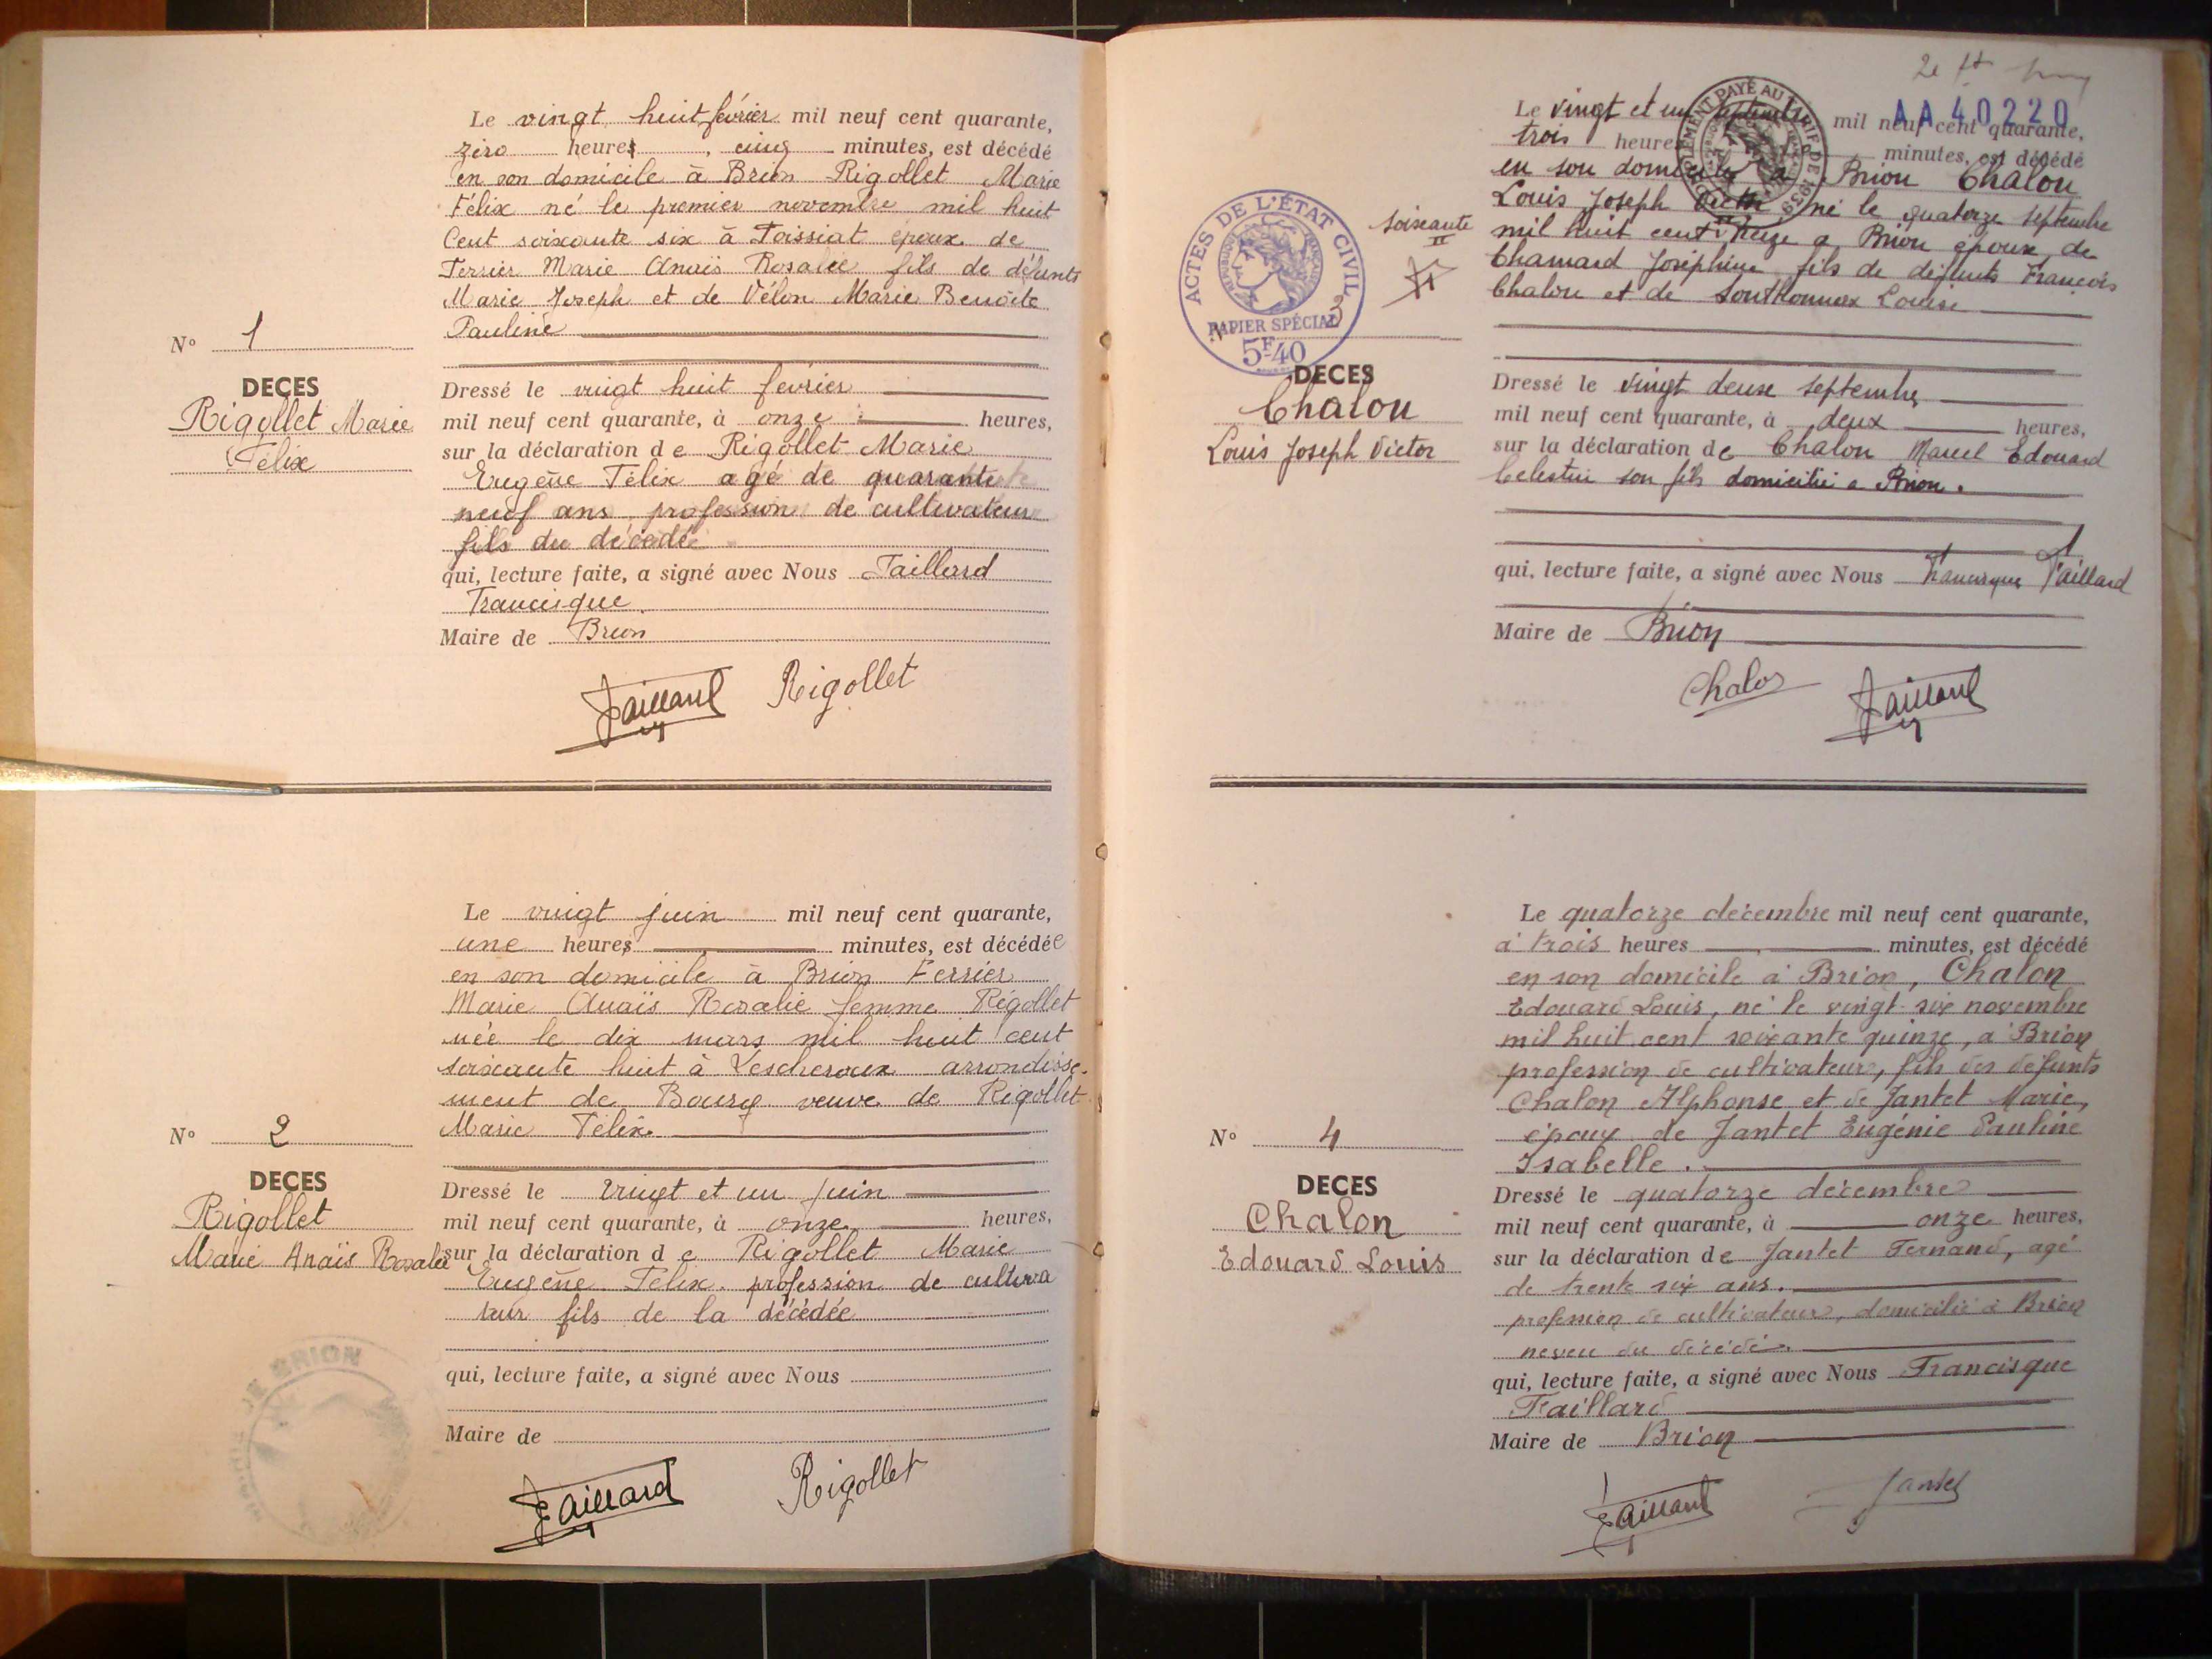 Le vingt huit février mil neuf cent quarante,
zéro heures, cinq minutes, est décédé
en son domicile à Brion Rigollet Marie
Félix né le premier novembre mil huit
Cent soixante six à Foissiat époux de
Ferrier Marie Anaïs Rosalie fils de défunts
Marie Joseph et de Vélon Marie Benoîte
Pauline
N° 1
DECES
Rigollet Marie
Félix
Dressé le vingt huit fevrier
mil neuf cent quarante, à onze heures,
sur la déclaration de Rigollet Marie
Eugène Félix agé de quarante
neuf ans profession de cultivateur
fils du décédé
qui, lecture faite, a signé avec Nous Taillard
Francisque
Maire de Brion
Taillard Rigollet
Le vingt juin mil neuf cent quarante,
une heures minutes, est décédée
en son domicile à Brion Ferrier
Marie Anaïs Rosalie femme Rigollet
née le dix mars mil huit cent
soixante huit à Lescheroux arrondisse-
ment de Bourg veuve de Rigollet
Marie Félix.
N° 2
DECES
Rigollet
Marie Anaïs Rosalie
Dressé le Vingt et un juin
mil neuf cent quarante, à onze heures,
sur la déclaration de Rigollet Marie
Eugène Félix profession de cultiva
teur fils de la décédée
qui, lecture faite, a signé avec Nous
Maire de
MAIRIE DE BRION
Taillard Rigollet
AA 40220
Le vingt et un septembre mil neuf cent quarante,
trois heures minutes, est décédé
en son domicile à Brion Chalon
Louis Joseph Victor né le quatorze septembre
soixante
II
mil huit cent treize a Brion époux de
Chamard Joséphine fils de défunts François
Chalon et de Southonnax Louise
ACTES DE L'ÉTAT CIVIL
PAPIER SPÉCIAL
5F40
SUPPLÉMENT PAYÉ AU TARIF DE 1939
N° 3
DECES
Chalon
Louis Joseph Victor
Dressé le vingt deux septembre
mil neuf cent quarante, à deux heures,
sur la déclaration de Chalon Marcel Edouard
Celestin son fils domicilié a Brion.
qui, lecture faite, a signé avec Nous Francisque Taillard
Maire de Brion
Chalon Taillard
Le quatorze décembre mil neuf cent quarante,
à trois heures minutes, est décédé
en son domicile à Brion, Chalon
Edouard Louis, né le vingt six novembre
mil huit cent soixante quinze, à Brion
profession de cultivateur, fils des défunts
Chalon Alphonse et de Jantet Marie,
époux de Jantet Eugénie Pauline
Isabelle.
N° 4
DECES
Chalon
Edouard Louis
Dressé le quatorze décembre
mil neuf cent quarante, à onze heures,
sur la déclaration de Jantet Fernand, agé
de trente six ans.
profession de cultivateur, domicilié à Brion
neveu du décédé.
qui, lecture faite, a signé avec Nous Francisque
Taillard
Maire de Brion
Taillard Jantet